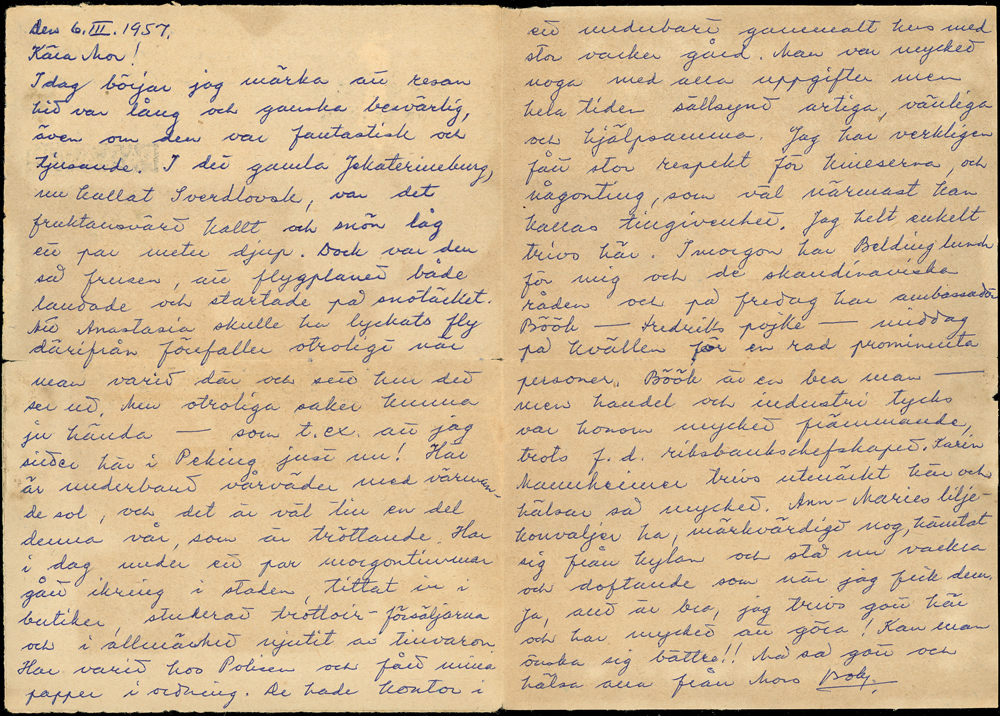 Den 6.III.1957.
Kära Mor!
Idag börjar jag märka att resan
hit var lång och ganska besvärlig,
även om den var fantastisk och
tjusande. I det gamla Jekaterineburg,
nu kallat Sverdlovsk, var det
fruktansvärt kallt och snön låg
ett par meter djup. Dock var den
så frusen, att flygplanet både
landade och startade på snötäcket.
Att Anastasia skulle ha lyckats fly
därifrån förefaller otroligt när
man varit där och sett hur det
ser ut. Men otroliga saker kunna
ju hända — som t.ex. att jag
sitter här i Peking just nu! Här
är underbart vårväder med värman-
de sol, och det är väl till en del
denna vår, som är tröttande. Har
i dag under ett par morgontimmar
gått ikring i staden, tittat in i
butiker, studerat trottoir-försäljarna
och i allmänhet njutit av tillvaron.
Har varit hos Polisen och fått mina
papper i ordning. De hade kontor i
ett underbart gammalt hus med
stor vacker gård. Man var mycket
noga med alla uppgifter men
hela tiden sällsynt artiga, vänliga
och hjälpsamma. Jag har verkligen
fått stor respekt för kineserna, och
någonting, som väl närmast kan
kallas tillgivenhet. Jag helt enkelt
trivs här. I morgon har Belding lunch
för mig och de skandinaviska
råden och på fredag har ambassadör
Böök — Fredriks pojke — middag
på kvällen för en rad prominenta
personer. Böök är en bra man —
men handel och industri tycks
var honom mycket främmande,
trots f.d. riksbankschefskapet. Karin
Mannheimer trivs utmärkt här och
hälsar så mycket. Ann-Maries lilje-
konvaljer ha, märkvärdigt nog, hämtat
sig från kylan och stå nu vackra
och doftande som när jag fick dem.
Ja, allt är bra, jag trivs gott här
och har mycket att göra! Kan man
önska sig bättre!! Må så gott och
hälsa alla från Mors